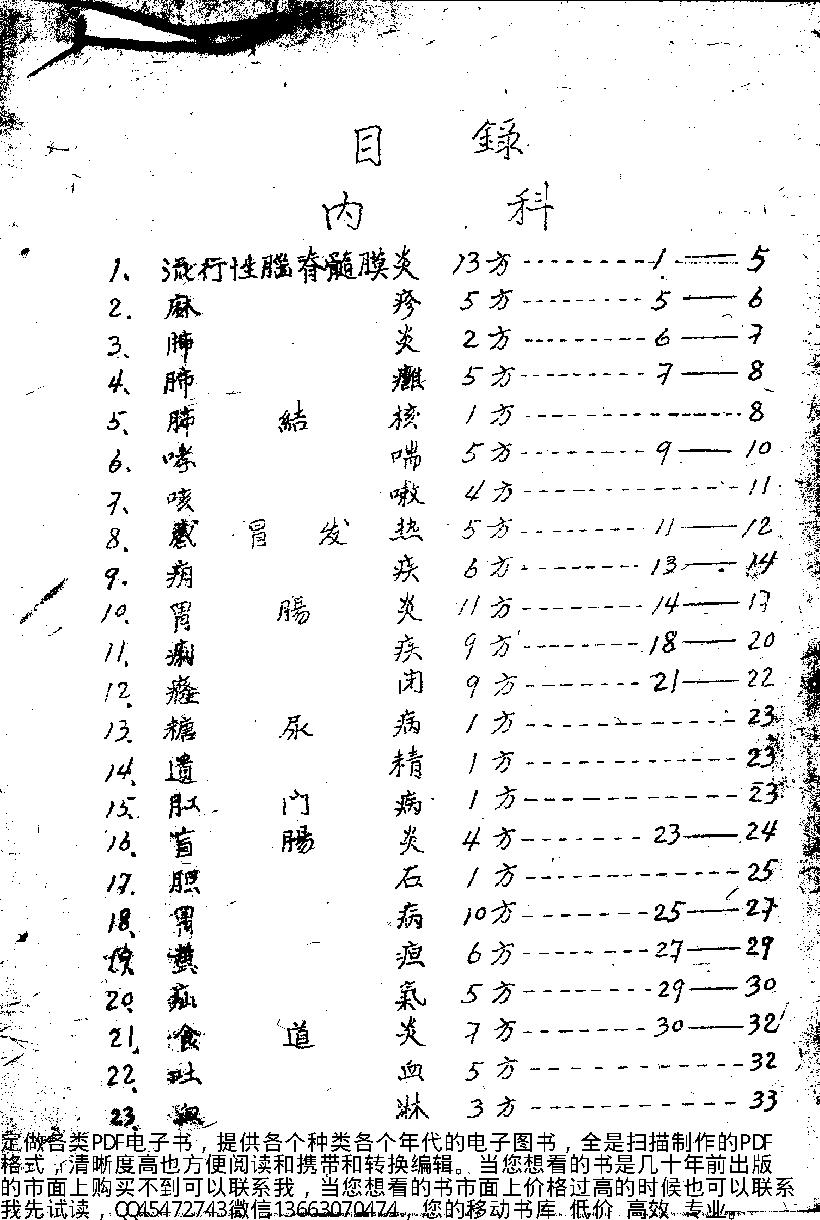 目　錄
内　科
1、流行性腦脊髓膜炎 13方--------1——5
2. 麻疹 5方--------5——6
3、肺炎 2方--------6——7
4、肺癱 5方--------7——8
5、肺結核 1方--------8
6、哮喘 5方--------9——10
7、咳嗽 4方--------11
8、感冒发热 5方--------11——12
9. 痨疾 6方--------13——14
10. 胃腸炎 11方--------14——17
11. 痢疾 9方--------18——20
12. 癃闭 9方--------21——22
13. 糖尿病 1方--------23
14. 遺精 1方--------23
15. 肛门病 1方--------23
16. 盲腸炎 4方--------23——24
17. 胆石 1方--------25
18. 胃病 10方--------25——27
黄疸 6方--------27——29
20. 疝氣 5方--------29——30
21. 食道炎 7方--------30——32
22. 吐血 5方--------32
23. 血淋 3方--------33
定做各类PDF电子书，提供各个种类各个年代的电子图书，全是扫描制作的PDF
格式，清晰度高也方便阅读和携带和转换编辑。当您想看的书是几十年前出版
的市面上购买不到可以联系我，当您想看的书市面上价格过高的时候也可以联系
我先试读，QQ45472743微信13663070474，您的移动书库 低价 高效 专业。